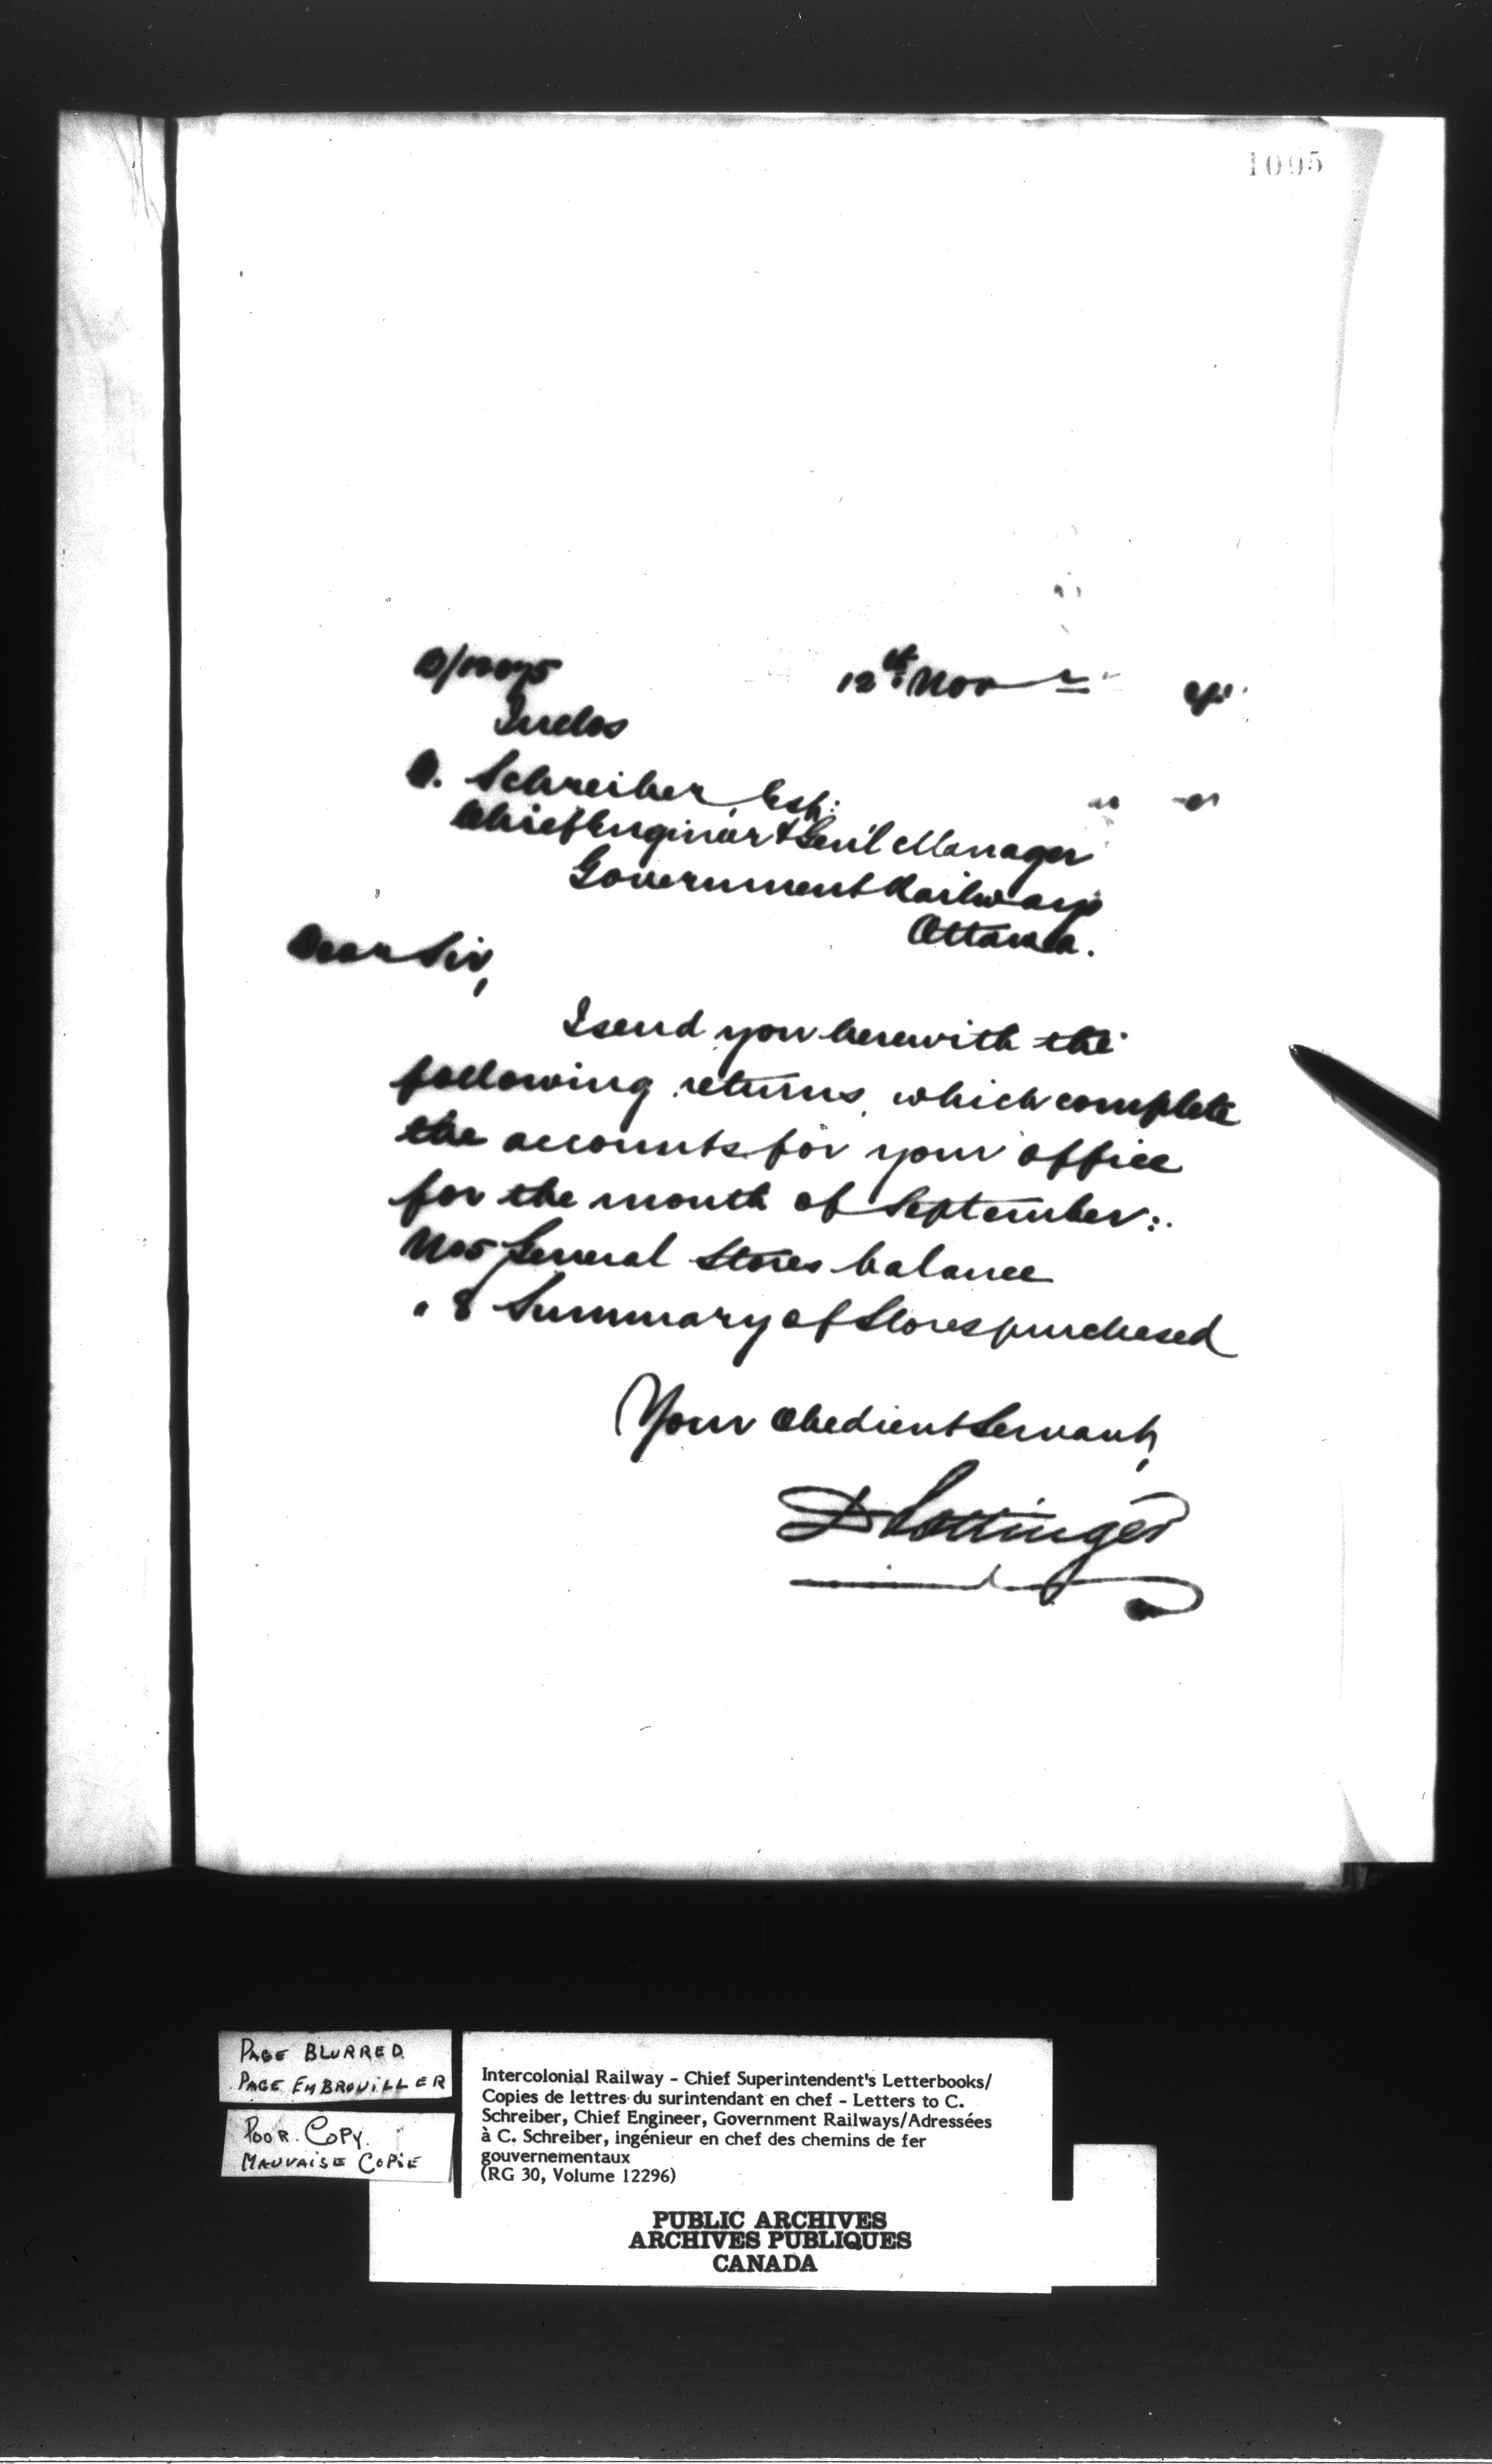 1095
12th Nov r
Inclos
C. Schreiber, Esq:
Chief Engineer & Gen'l Manager
Government Railways
Ottawa.
Dear Sir,
I send you herewith the
following returns, which complete
the accounts for your office
for the month of September:.
No 5 General Stores balance
" 8 Summary of Stores purchased
Your Obedient Servant,
D Pottinger
PAGE BLURRED.
PAGE EMBROUILLER
POOR. COPY.
MAUVAISE COPIE
Intercolonial Railway - Chief Superintendent's Letterbooks/
Copies de lettres du surintendant en chef - Letters to C.
Schreiber, Chief Engineer, Government Railways/Adressées
à C. Schreiber, ingénieur en chef des chemins de fer
gouvernementaux
(RG 30, Volume 12296)
PUBLIC ARCHIVES
ARCHIVES PUBLIQUES
CANADA